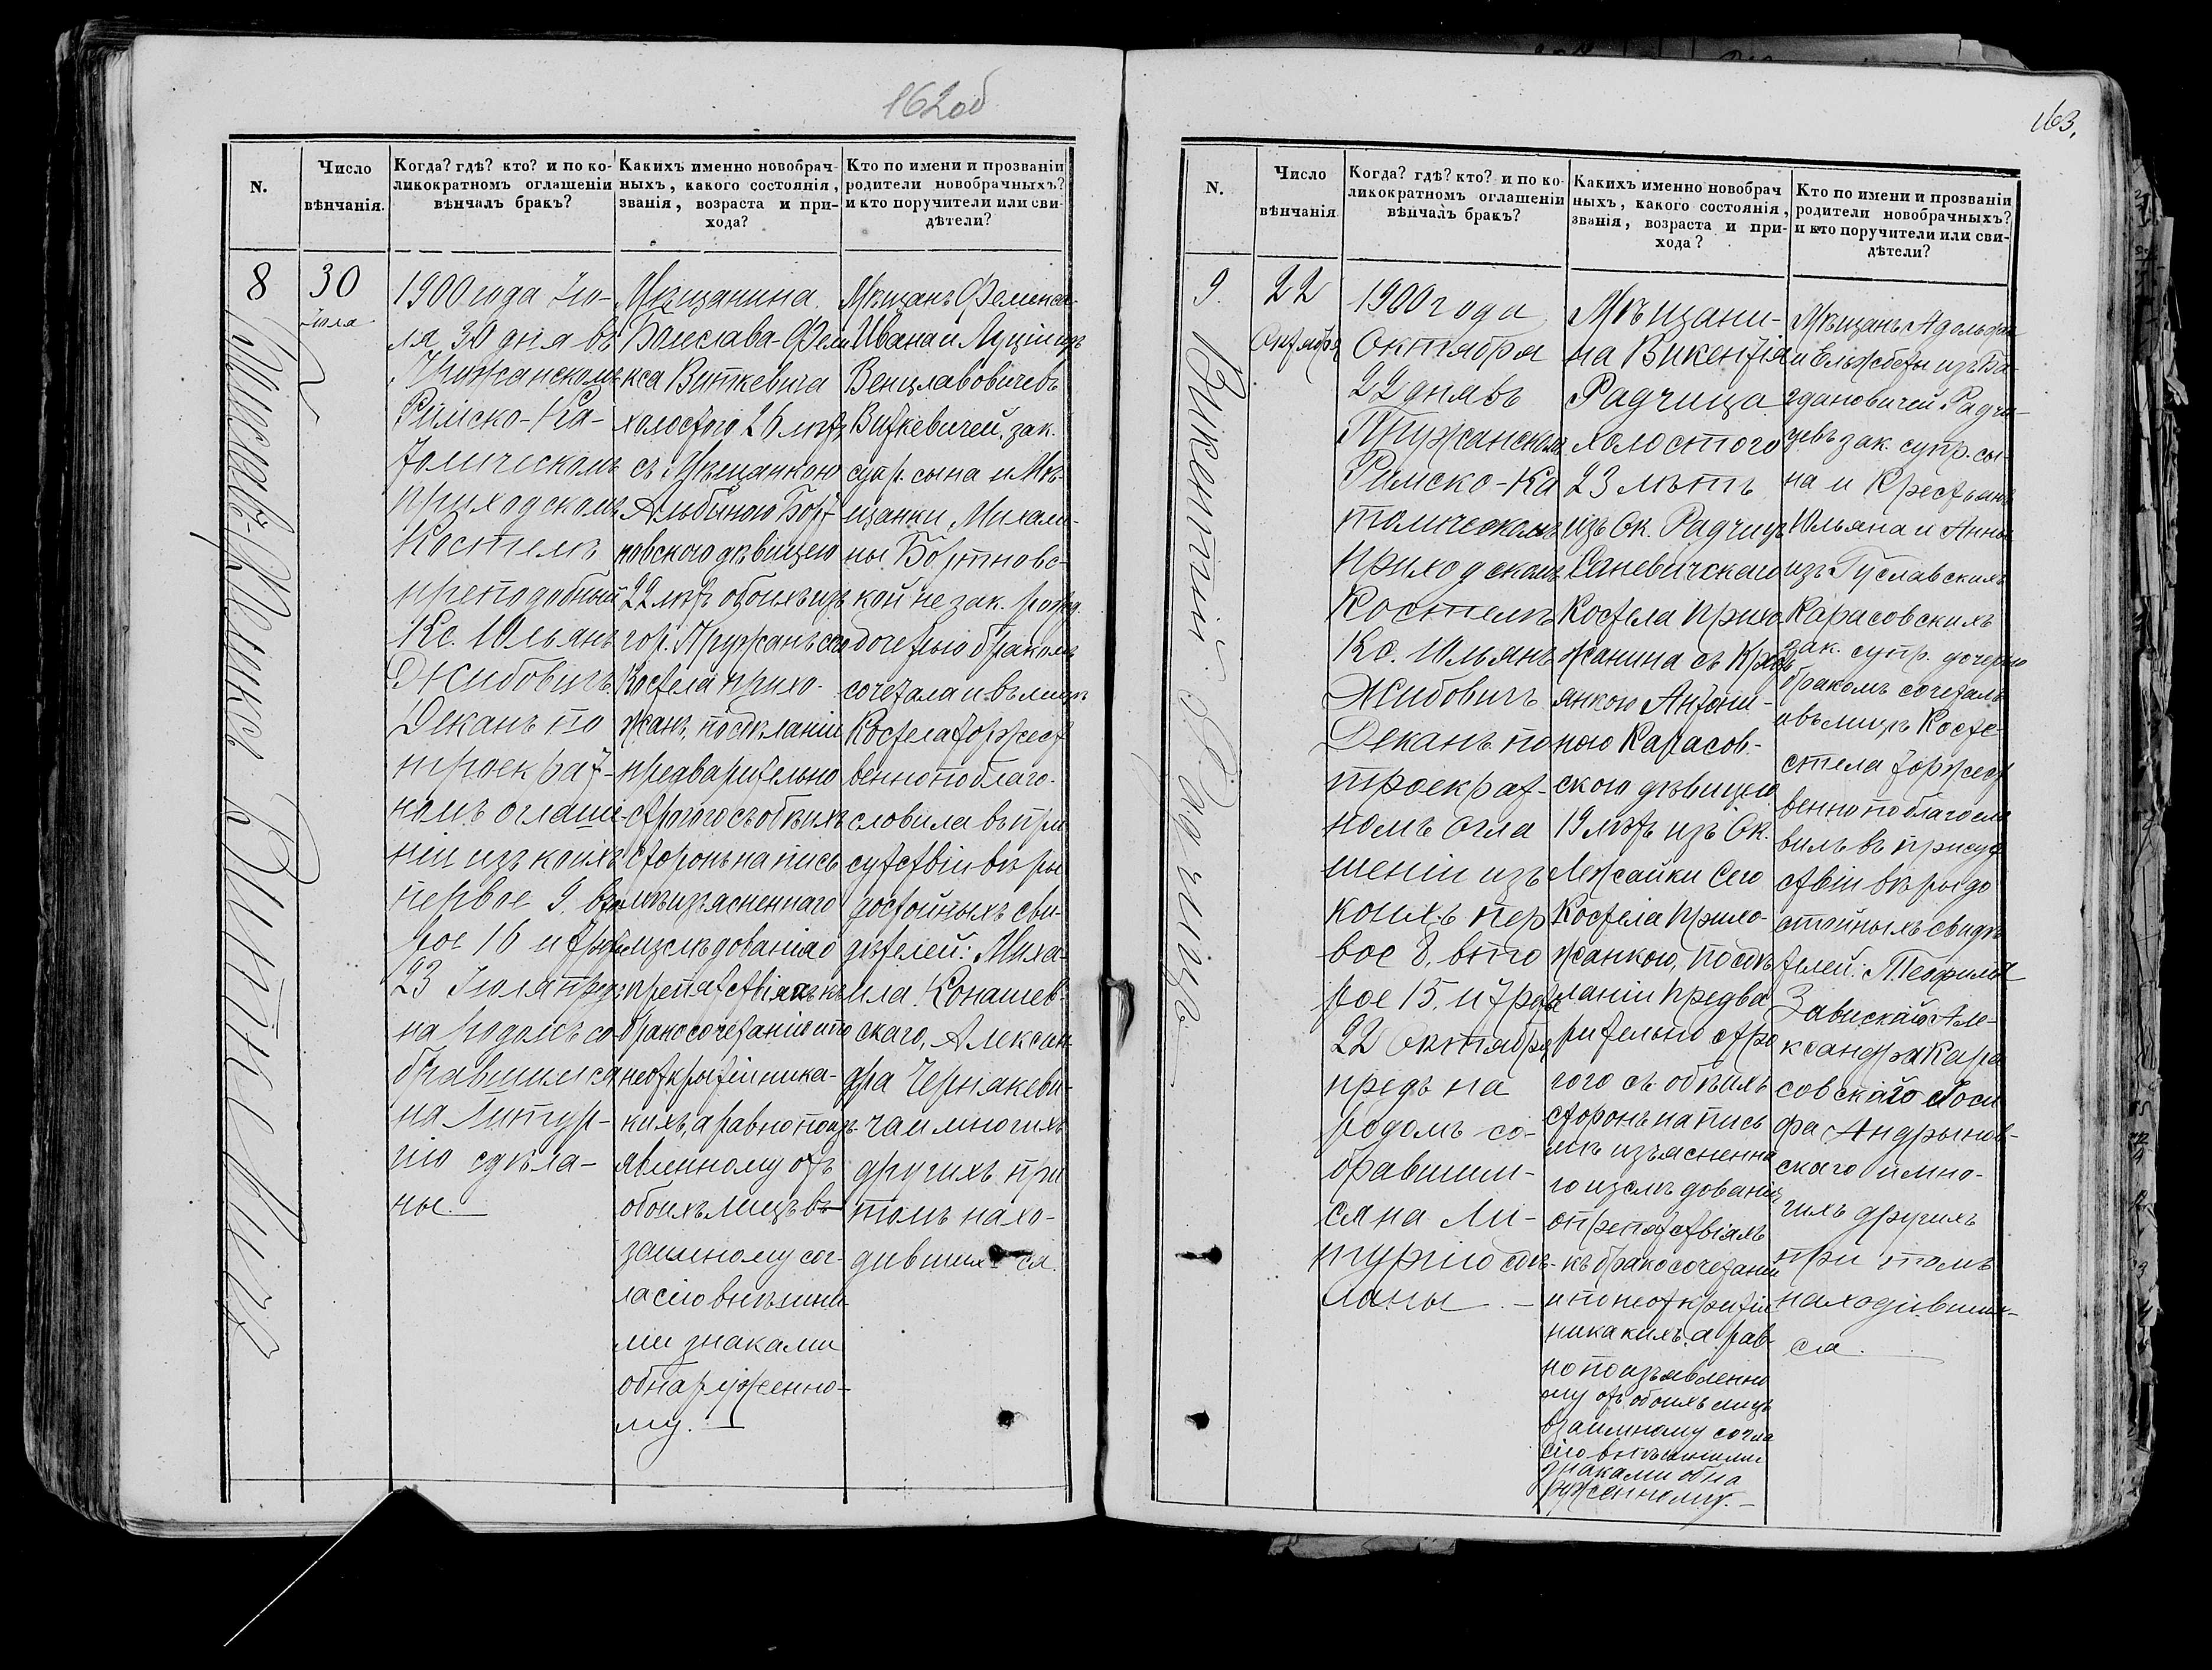 162об
N.
Число
вѣнчанія.
Когда? гдѣ? кто? и по ко-
ликократномъ оглашеніи
вѣнчалъ бракъ?
Какихъ именно новобрач-
ныхъ, какого состоянія,
званія, возраста и при-
хода?
Кто по имени и прозванію
родители новобрачныхъ?
и кто поручители или сви-
дѣтели?
8
30
Іюля
1900 года Ію-
ля 30 дня въ
Пружанскомъ
Римско-Ка-
толическомъ
приходскомъ
Костелѣ
преподобный
Кс. Юльянъ
Жибовичъ
Деканъ по
троекрат-
номъ оглаше-
ніи изъ коихъ
первое 9, вто
рое 16 и третье
23 Іюля предъ
народомъ со
бравшимся
на Литур-
гію сдѣла-
ны.
Мѣщанина
Болеслава-Фели
кса Виткевича
холостого 26 лѣтъ
съ Мѣщанкою
Альбиною Борт-
новскою дѣвицею
22 лѣтъ обоихъ изъ
гор. Пружанъ сего
Костела прихо-
жанъ, по сдѣланіи
предварительно
строгого съ обѣихъ
сторонъ на пись
мѣ изъясненнаго
изслѣдованія о
препятствіяхъ къ
бракосочетанію и по
неоткрытіи ника-
кихъ, а равно по изъ-
явленному отъ
обоихъ лицъ вза-
заимному сог-
ласію внѣшни-
ми знаками
обнаруженно-
му.
Мѣщанъ
Ивана и Луціи изъ
Венцлавовичевъ
Виткевичей, зак.
супр. сына и Мѣ-
щанки Михали-
ны Бортновс-
кой не зак. рожд.
дочерью бракомъ
сочетала и въ лицѣ
Костела торжест
венно поблаго-
словила въ при
сутствіи вѣры
достойныхъ сви-
дѣтелей: Миха-
ила Конашев-
скаго, Алексан-
дра Чернякеви-
ча и многихъ
другихъ при
томъ нахо-
дившихся.
163.
N.
Число
вѣнчанія.
Когда? гдѣ? кто? и по ко-
ликократномъ оглашеніи
вѣнчалъ бракъ?
Какихъ именно новобрач
ныхъ, какого состоянія,
званія, возраста и при-
хода?
Кто по имени и прозванію
родители новобрачныхъ?
и кто поручители или сви-
дѣтели?
9.
Викентій Радчицъ
22
Октября
1900 года
Октября
22 дня въ
Пружанскомъ
Римско-Ка
толическомъ
приходскомъ
Костелѣ
Кс. Юльянъ
Жибовичъ
Деканъ по
троекрат-
номъ огла
шеніи изъ
коихъ пер
вое 8, вто
рое 15 и третье
22 Октября
предъ на
родомъ со-
бравшим-
ся на Ли-
тургію сдѣ-
ланы.
Мѣщани-
на Викентія
Радчица
холостого
23 лѣтъ
изъ Ок. Радчицъ
Сѣневичскаго
Костела прихо
жанина съ Крест
янкою Антони-
ною Карасов-
скою дѣвицею
19 лѣтъ изъ Ок.
Лежайки сего
Костела прихо-
жанкою, по сдѣ
ланіи предва
рительно стро
гого съ обѣихъ
сторонъ на пись
мѣ изъясненна
го изслѣдованія
о препятствіяхъ
къ бракосочетанію
и по неоткрытіи
никакихъ, а рав
но по изъявленно
му отъ обоихъ лицъ
взаимному согла
сію внѣшними
знаками обна
руженному.
Мѣщанъ Адольфа
и Ельжбеты изъ Ба-
гдановичей Радчи-
цевъ зак. супр. сы-
на и Крестьянъ
Юльяна и Анны
изъ Гуславскихъ
Карасовскихъ
зак. супр. дочерью
бракомъ сочеталъ
и въ лицѣ Косте-
стела торжест
венно поблагосло
вилъ въ присут
ствіи вѣры до
стойныхъ свидѣ
телей: Теофила
Завискаго Але-
ксандра Кара
совскаго Іоси
фа Андрынов-
скаго и мно-
гихъ другихъ
при томъ
находивших-
ся.